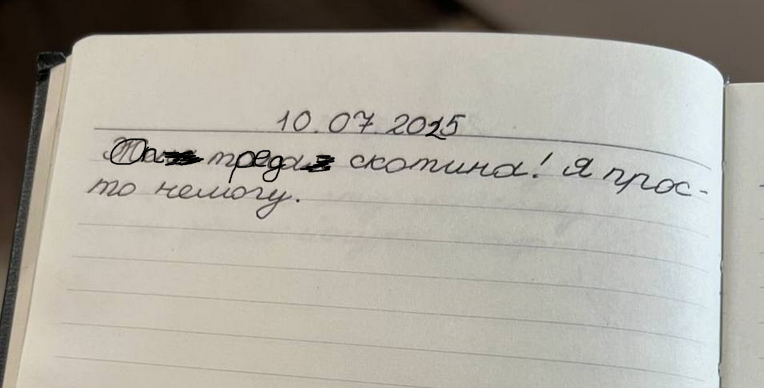 10.07.2025
треда скотина! Я прос-
то немогу.